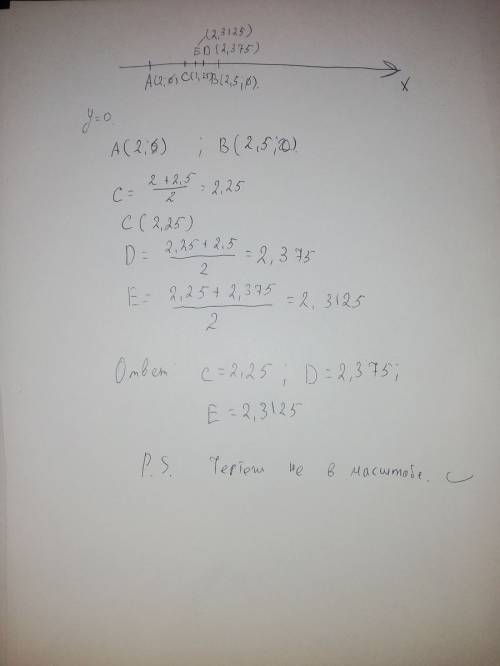 (2,3125)
E D (2,375)
A(2;0) C(2,25) B(2,5;0).
X
y=0.
A(2;0) ; B(2,5;0).
C = (2+2,5)/2 = 2,25
C(2,25)
D = (2,25+2,5)/2 = 2,375
E = (2,25+2,375)/2 = 2,3125
Ответ: C=2,25; D=2,375;
E=2,3125
P.S. Чертеж не в масштабе.